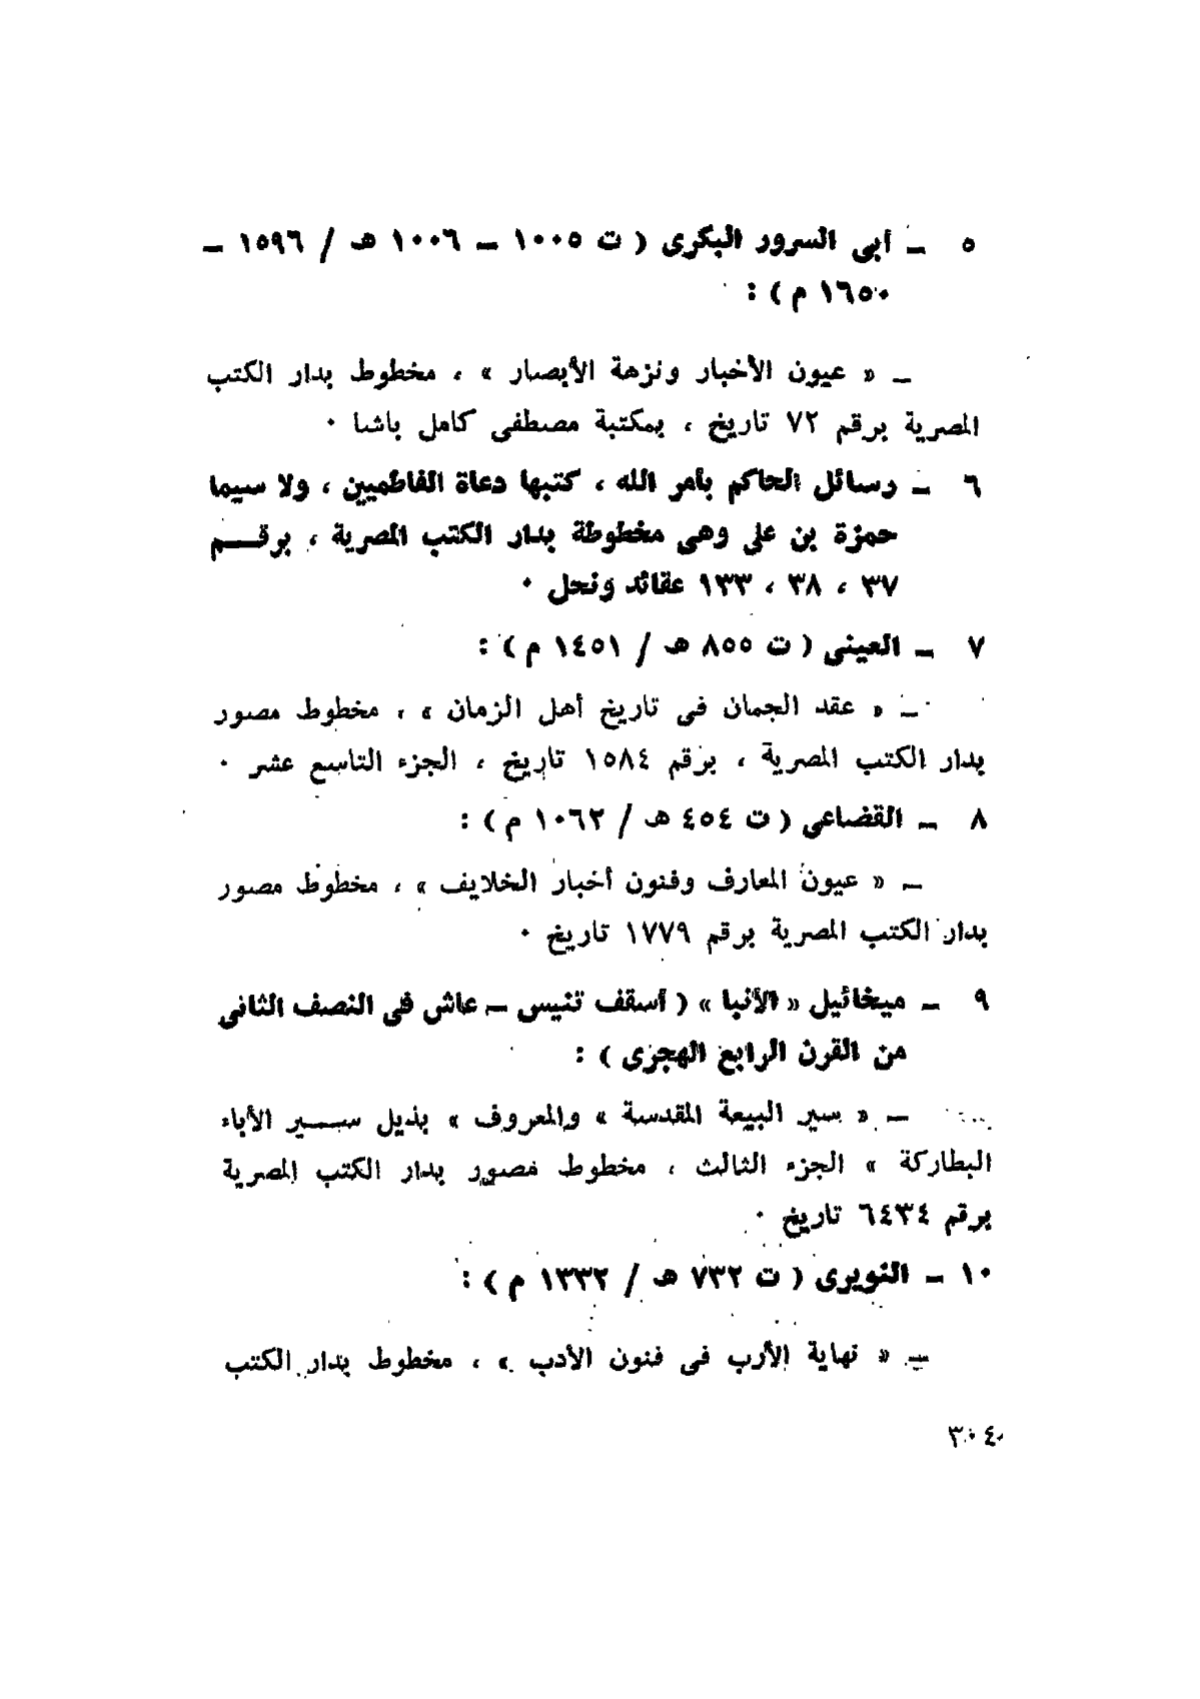 ٥ ـ أبى السرور البكرى ( ت ١٠٠٥ ـ ١٠٠٦ هـ / ١٥٩٦ ـ
١٦٥٠ م ) :
ـ « عيون الأخبار ونزهة الأبصار » ، مخطوط بدار الكتب
المصرية برقم ٧٢ تاريخ ، بمكتبة مصطفى كامل باشا ٠
٦ ـ رسائل الحاكم بأمر الله ، كتبها دعاة الفاطميين ، ولا سيما
حمزة بن على وهى مخطوطة بدار الكتب المصرية ، برقـــم
٣٧ ، ٣٨ ، ١٣٣ عقائد ونحل ٠
٧ ـ العينى ( ت ٨٥٥ هـ / ١٤٥١ م ) :
ـ « عقد الجمان فى تاريخ أهل الزمان » ، مخطوط مصور
بدار الكتب المصرية ، برقم ١٥٨٤ تاريخ ، الجزء التاسع عشر ٠
٨ ـ القضاعى ( ت ٤٥٤ هـ / ١٠٦٢ م ) :
ـ « عيون المعارف وفنون أخبار الخلايف » ، مخطوط مصور
بدار الكتب المصرية برقم ١٧٧٩ تاريخ ٠
٩ ـ ميخائيل « الأنبا » ( أسقف تنيس ـ عاش فى النصف الثانى
من القرن الرابع الهجرى ) :
ـ « سير البيعة المقدسة » والمعروف » بذيل ســـير الأباء
البطاركة » الجزء الثالث ، مخطوط مصور بدار الكتب المصرية
برقم ٦٤٣٤ تاريخ ٠
١٠ ـ النويرى ( ت ٧٣٢ هـ / ١٣٣٢ م ) :
ـ « نهاية الأرب فى فنون الأدب » ، مخطوط بدار الكتب
٣٠٤